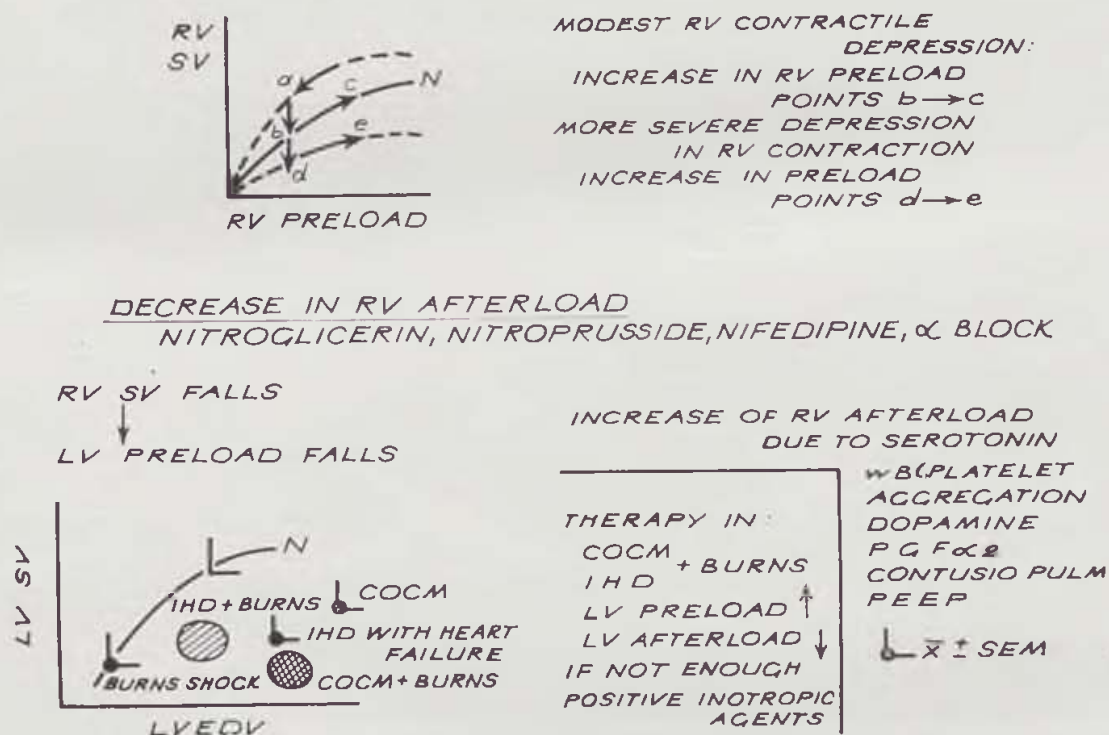 RV
SV
a
b
c
N
d
e
RV PRELOAD
MODEST RV CONTRACTILE
DEPRESSION:
INCREASE IN RV PRELOAD
POINTS b→c
MORE SEVERE DEPRESSION
IN RV CONTRACTION
INCREASE IN PRELOAD
POINTS d→e
DECREASE IN RV AFTERLOAD
NITROGLICERIN, NITROPRUSSIDE, NIFEDIPINE, α BLOCK
RV SV FALLS
↓
LV PRELOAD FALLS
LV SV
N
IHD + BURNS
COCM
IHD WITH HEART
FAILURE
BURNS SHOCK
COCM + BURNS
LVEDV
INCREASE OF RV AFTERLOAD
DUE TO SEROTONIN
THERAPY IN:
COCM
IHD
+ BURNS
LV PRELOAD ↑
LV AFTERLOAD ↓
IF NOT ENOUGH
POSITIVE INOTROPIC
AGENTS
PLATELET
AGGREGATION
DOPAMINE
PGFα2
CONTUSIO PULM
PEEP
x̄ ± SEM